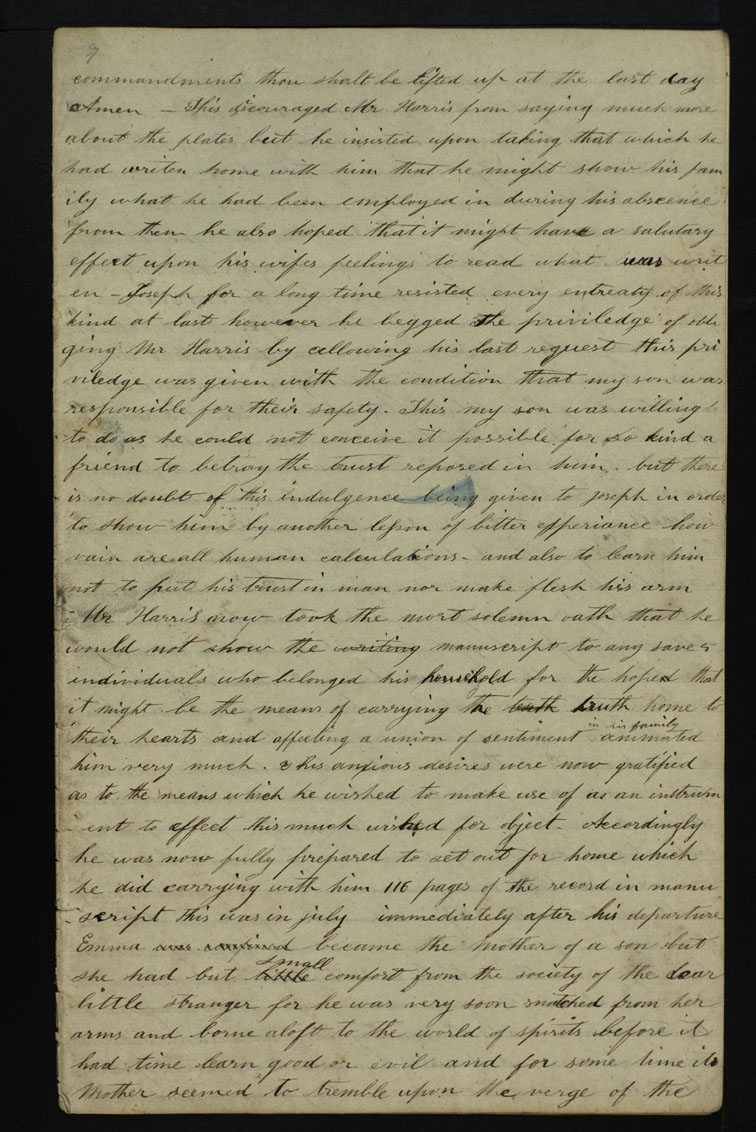 9
commandments thou shalt be lifted up at the last day
Amen — This dicouraged Mr Harris from saying much more
about the plates but he insisted upon taking that which he
had writen home with him that he might show his fam
ily what he had been employed in during his abscence
from them he also hoped that it might have a salutary
effect upon his wifes feelings to read what was writ
en — Joseph for a long time resisted every entreaty of this
kind at last however he begged the priviledge of obli
ging Mr Harris by allowing his last request this pri
viledge was given with the condition that my son was
responsible for their safety. This my son was willing
to do as he could not conceive it possible for so kind a
friend to betray the trust reposed in him but there
is no doubt of this indulgence being given to Joseph in order
to show him by another lesson of bitter experiance how
vain are all human calculations — and also to learn him
not to put his trust in man nor make flesh his arm
Mr Harris now took the most solemn oath that he
would not show the writing manuscript to any save 5
individuals who belonged his household for the hoped that
it might be the means of carrying the truth truth home to
in is family
their hearts and affecting a union of sentiment animated
him very much. His anxious desires were now gratified
as to the means which he wished to make use of as an instrum
ent to effect this much wished for object. Accordingly
he was now fully prepared to set out for home which
he did carrying with him 116 pages of the record in manu
script this was in july immediately after his departure
Emma was confined became the mother of a son but
small
she had but little comfort from the society of the dear
little stranger for he was very soon snatched from her
arms and borne aloft to the world of spirits before it
had time learn good or evil and for some time its
Mother seemed to tremble upon the verge of the